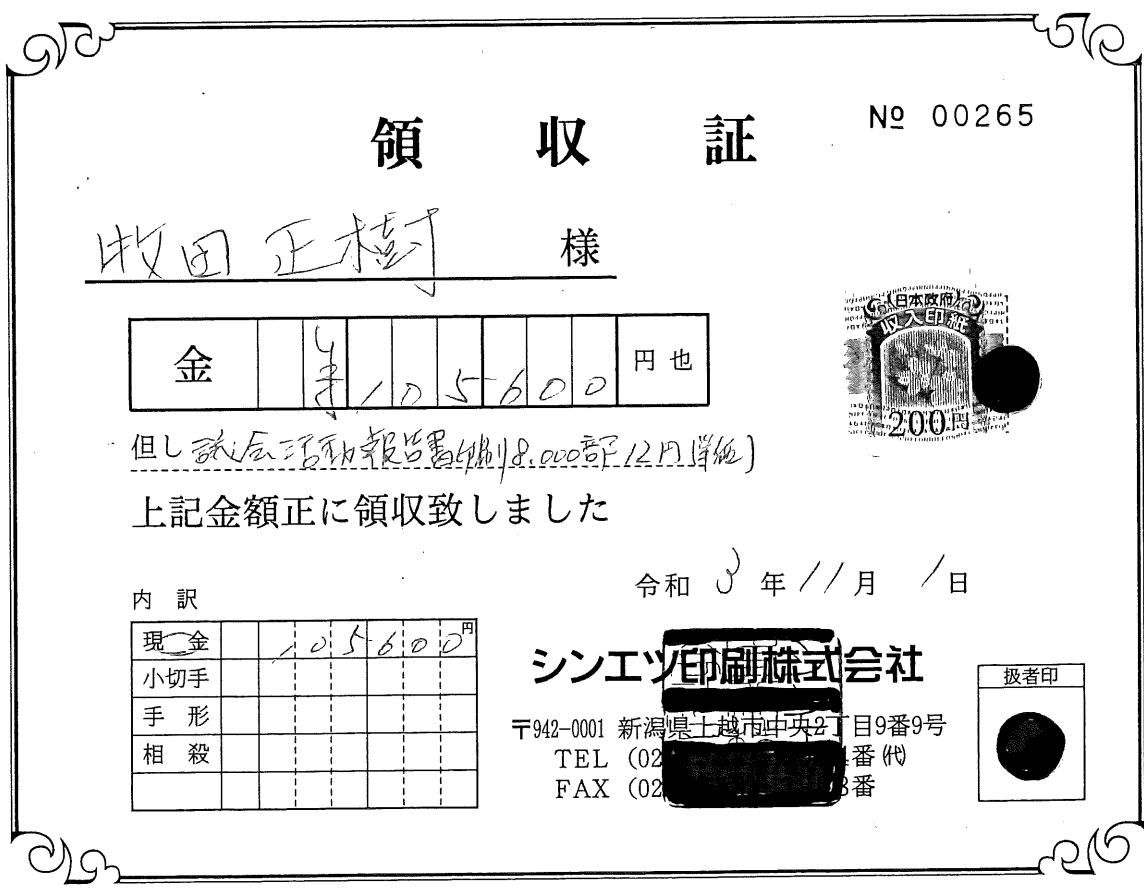 領収証
№ 00265
牧田 正樹 様
日本政府
収入印紙
200円
金 ¥105600 円也
但し 議会活動報告書印刷 8.000部 12円(単価)
上記金額正に領収致しました
令和 3年 11月 1日
内訳
現金 105600円
小切手
手形
相殺
シンエツ印刷株式会社
〒942-0001 新潟県上越市中央2丁目9番9号
TEL (02 4番(代)
FAX (02 3番
扱者印